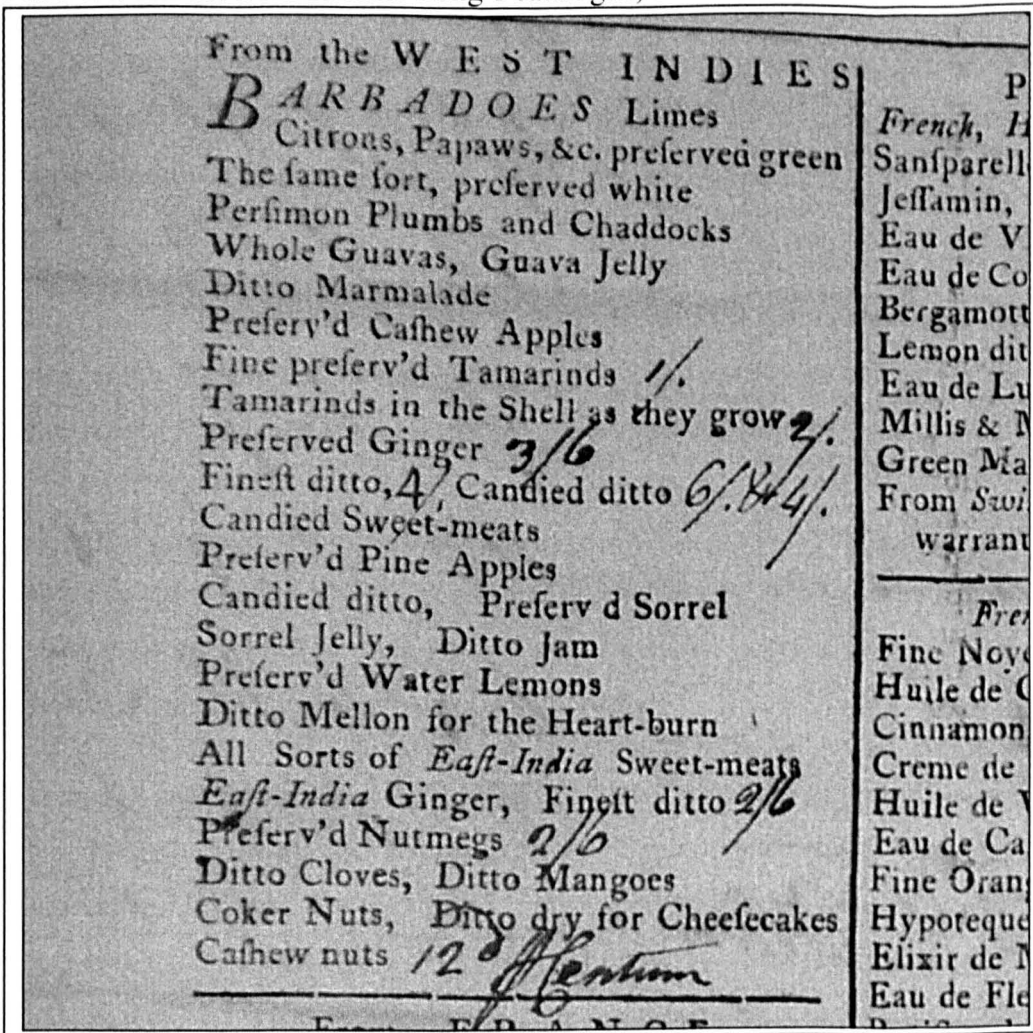 From the WEST INDIES
BARBADOES Limes
Citrons, Papaws, &c. preſerved green
The ſame ſort, preſerved white
Perſimon Plumbs and Chaddocks
Whole Guavas, Guava Jelly
Ditto Marmalade
Preſerv'd Caſhew Apples
Fine preſerv'd Tamarinds 1/.
Tamarinds in the Shell as they grow 2/.
Preſerved Ginger 3/6
Fineſt ditto, 4/, Candied ditto 6/. & 4/.
Candied Sweet-meats
Preſerv'd Pine Apples
Candied ditto, Preſerv d Sorrel
Sorrel Jelly, Ditto Jam
Preſerv'd Water Lemons
Ditto Mellon for the Heart-burn
All Sorts of Eaſt-India Sweet-meats
Eaſt-India Ginger, Fineſt ditto 2/6
Preſerv'd Nutmegs 2/6
Ditto Cloves, Ditto Mangoes
Coker Nuts, Ditto dry for Cheeſecakes
Caſhew nuts 12d
From FRANCE
P
French, H
Sanſparell
Jeſſamin,
Eau de V
Eau de Co
Bergamott
Lemon dit
Eau de Lu
Millis &
Green Ma
From Swi
warrant
Fren
Fine Noye
Huile de
Cinnamon
Creme de
Huile de V
Eau de Ca
Fine Orang
Hypoteque
Elixir de
Eau de Fle